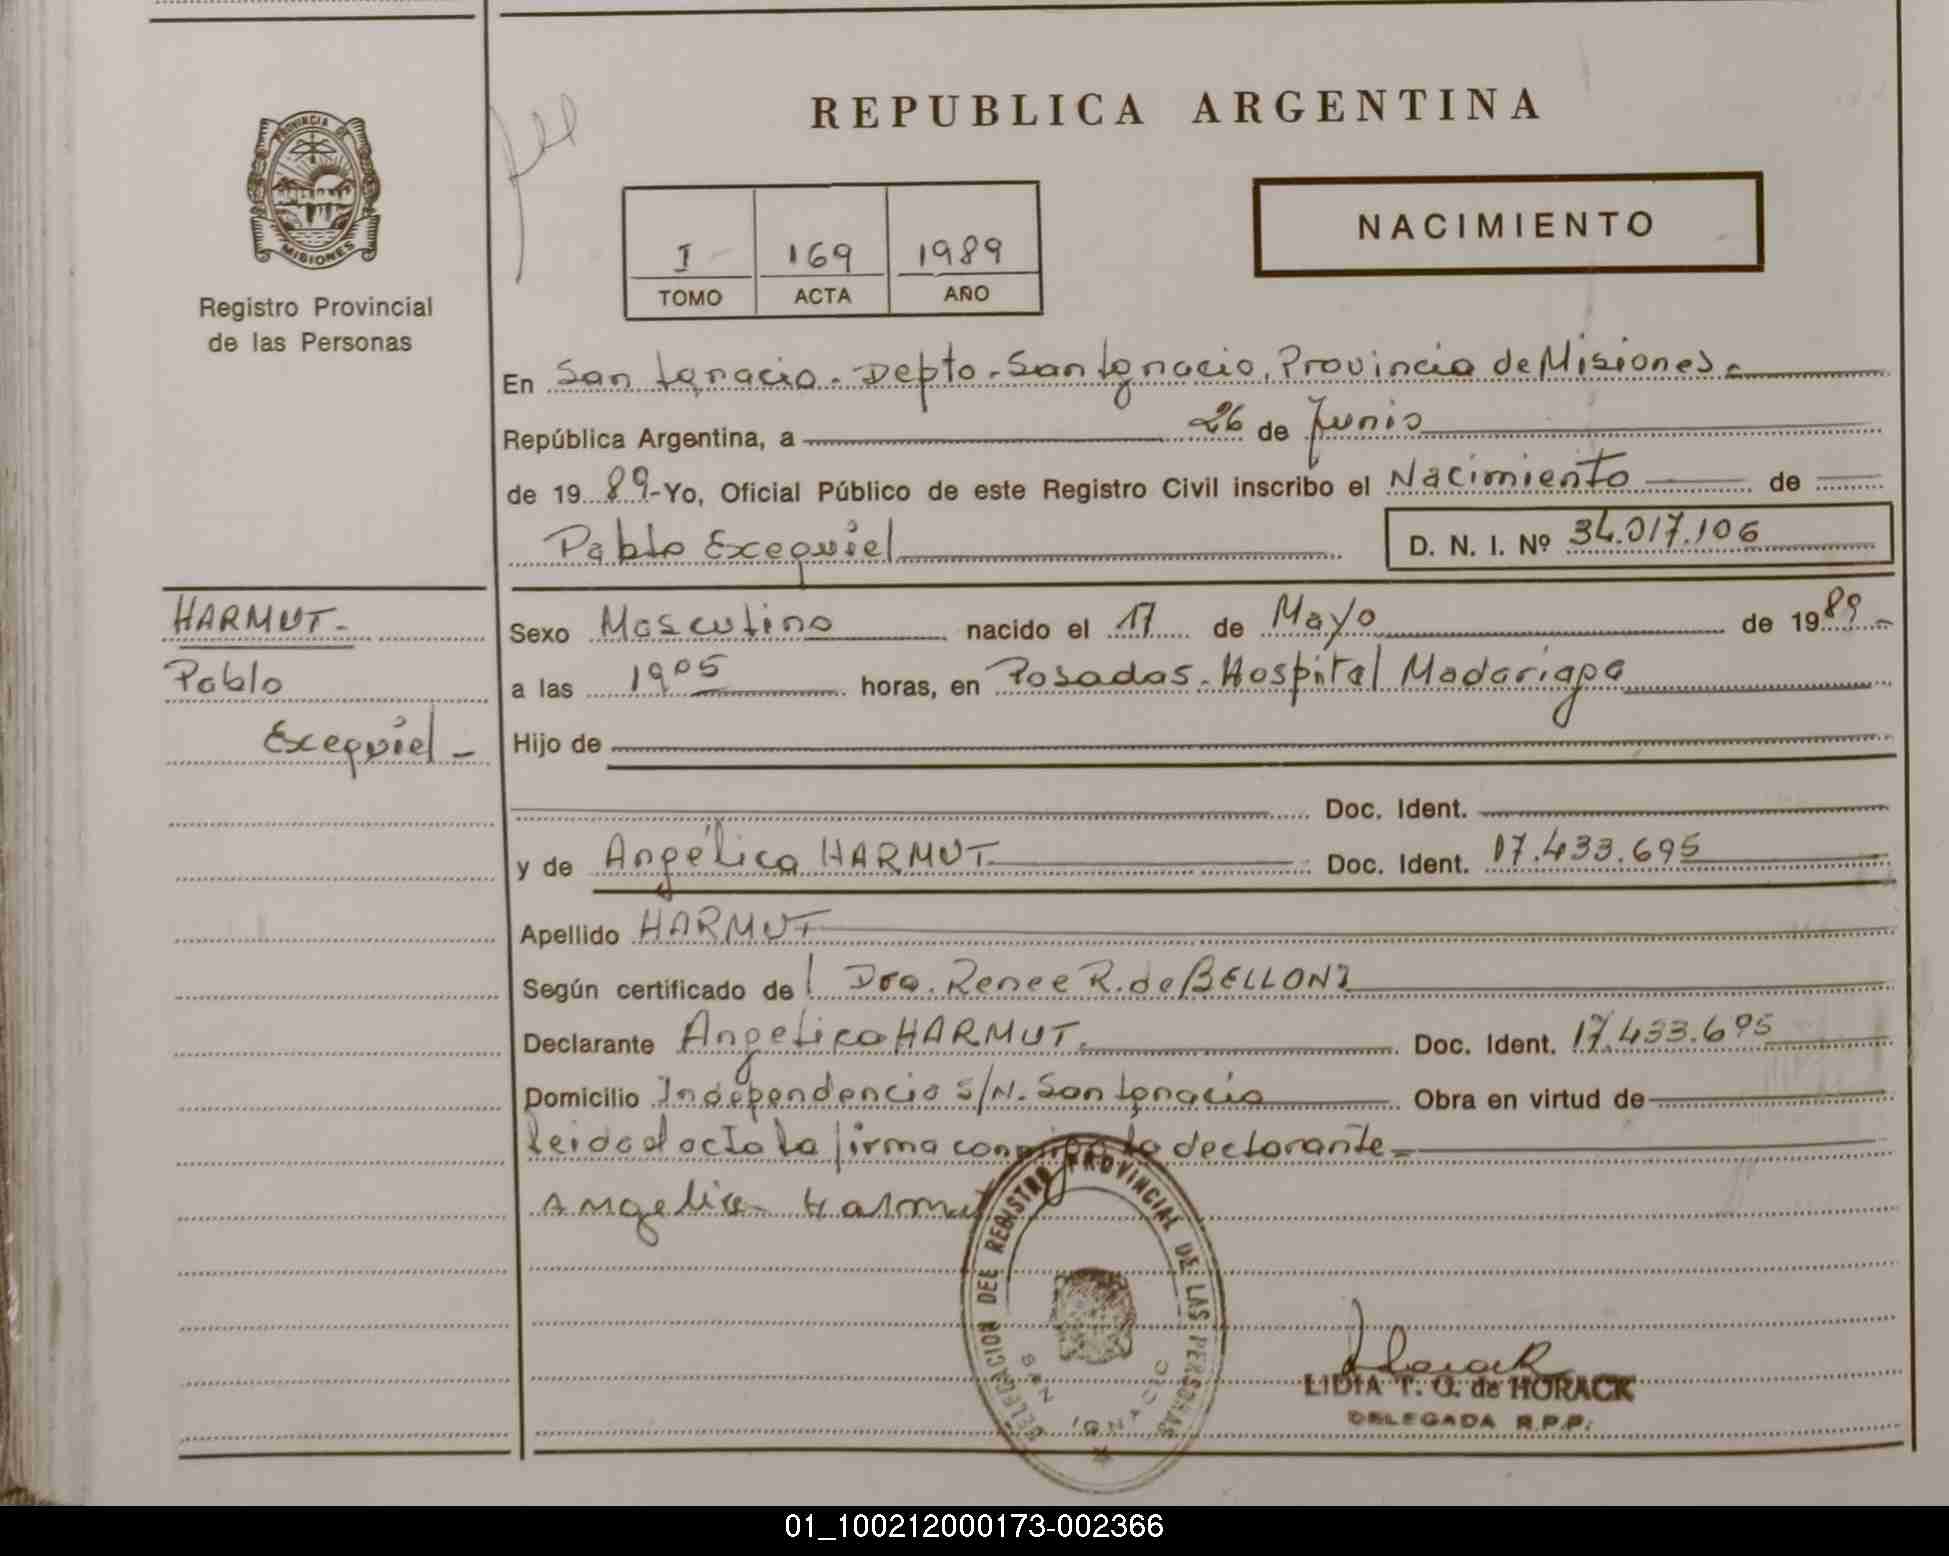 REPUBLICA ARGENTINA
PROVINCIA DE
MISIONES
Registro Provincial
de las Personas
I 169 1989
TOMO ACTA AÑO
NACIMIENTO
En San Ignacio. Depto. San Ignacio, Provincia de Misiones.
República Argentina, a 26 de Junio
de 19 89-Yo, Oficial Público de este Registro Civil inscribo el Nacimiento de
Pablo Exequiel D. N. I. Nº 34.017.106
HARMUT.-
Pablo
Exequiel -
Sexo Masculino nacido el 17 de Mayo de 19 89-
a las 19 05 horas, en Posadas. Hospital Madariaga
Hijo de
Doc. Ident.
y de Angélica HARMUT Doc. Ident. 17.433.695
Apellido HARMUT
Según certificado de Dra. Renee R. de BELLONI
Declarante Angelica HARMUT. Doc. Ident. 17.433.695
Domicilio Independencia S/N. San Ignacio Obra en virtud de
Leida el acta la firma conmigo la declarante.
Angelica Harmut
DELEGACION DEL REGISTRO PROVINCIAL DE LAS PERSONAS
SAN IGNACIO
LIDIA T. O. de HORACK
DELEGADA R.P.P.
01_100212000173-002366